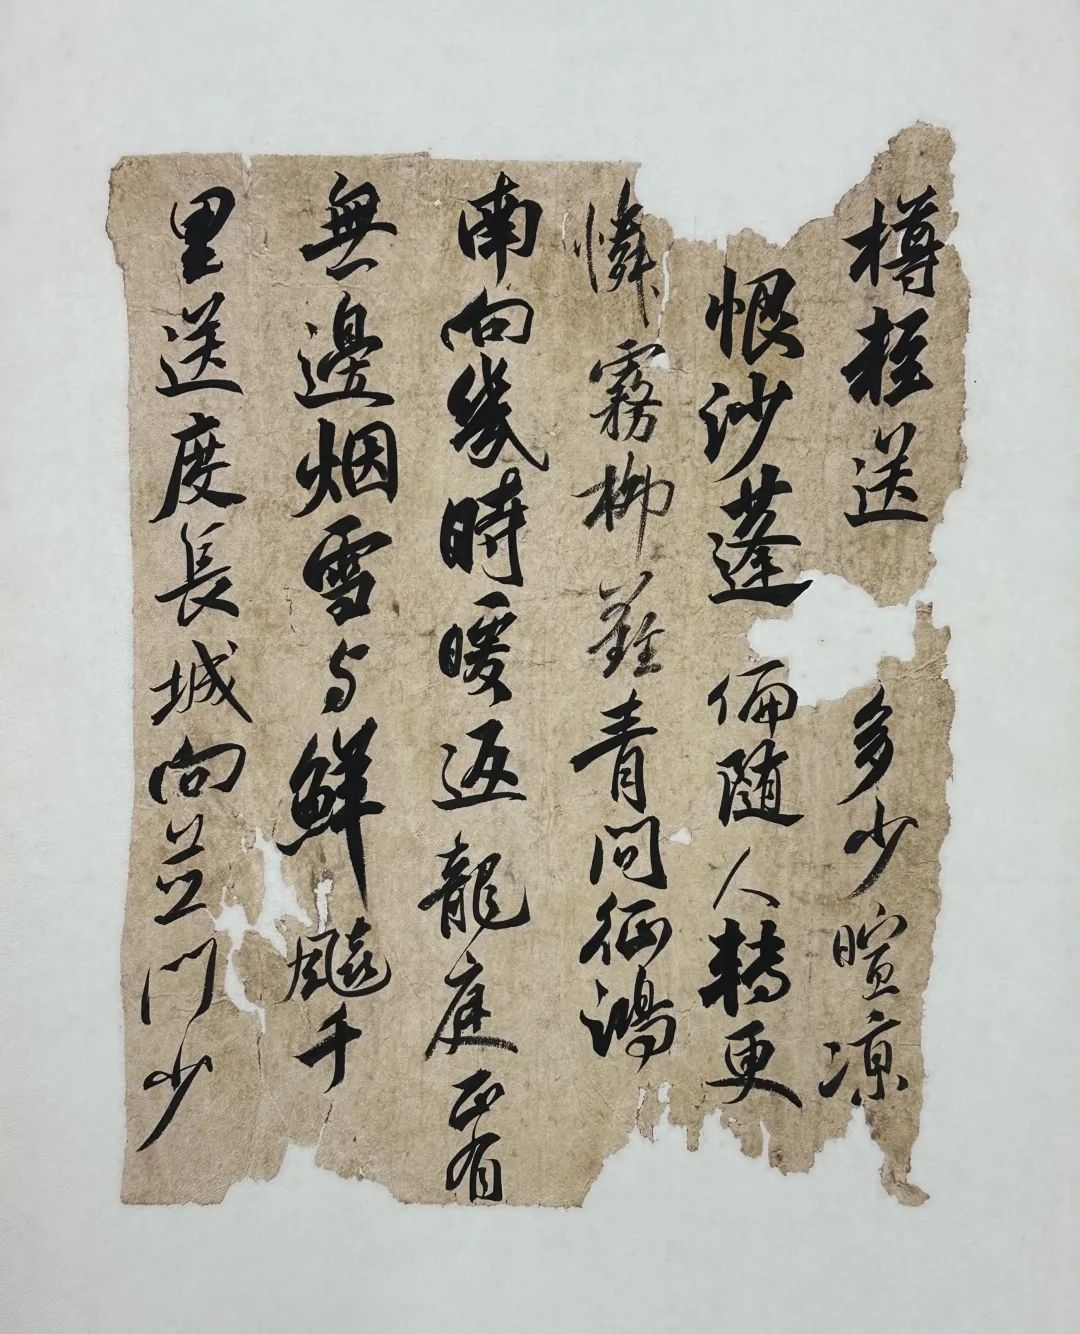 樽輕送多少暄凉
恨沙蓬偏隨人轉更
憐霧柳難青問征鴻
南向幾時暖返龍庭正有
無邊烟雪与鮮飈千
里送度長城向並門少